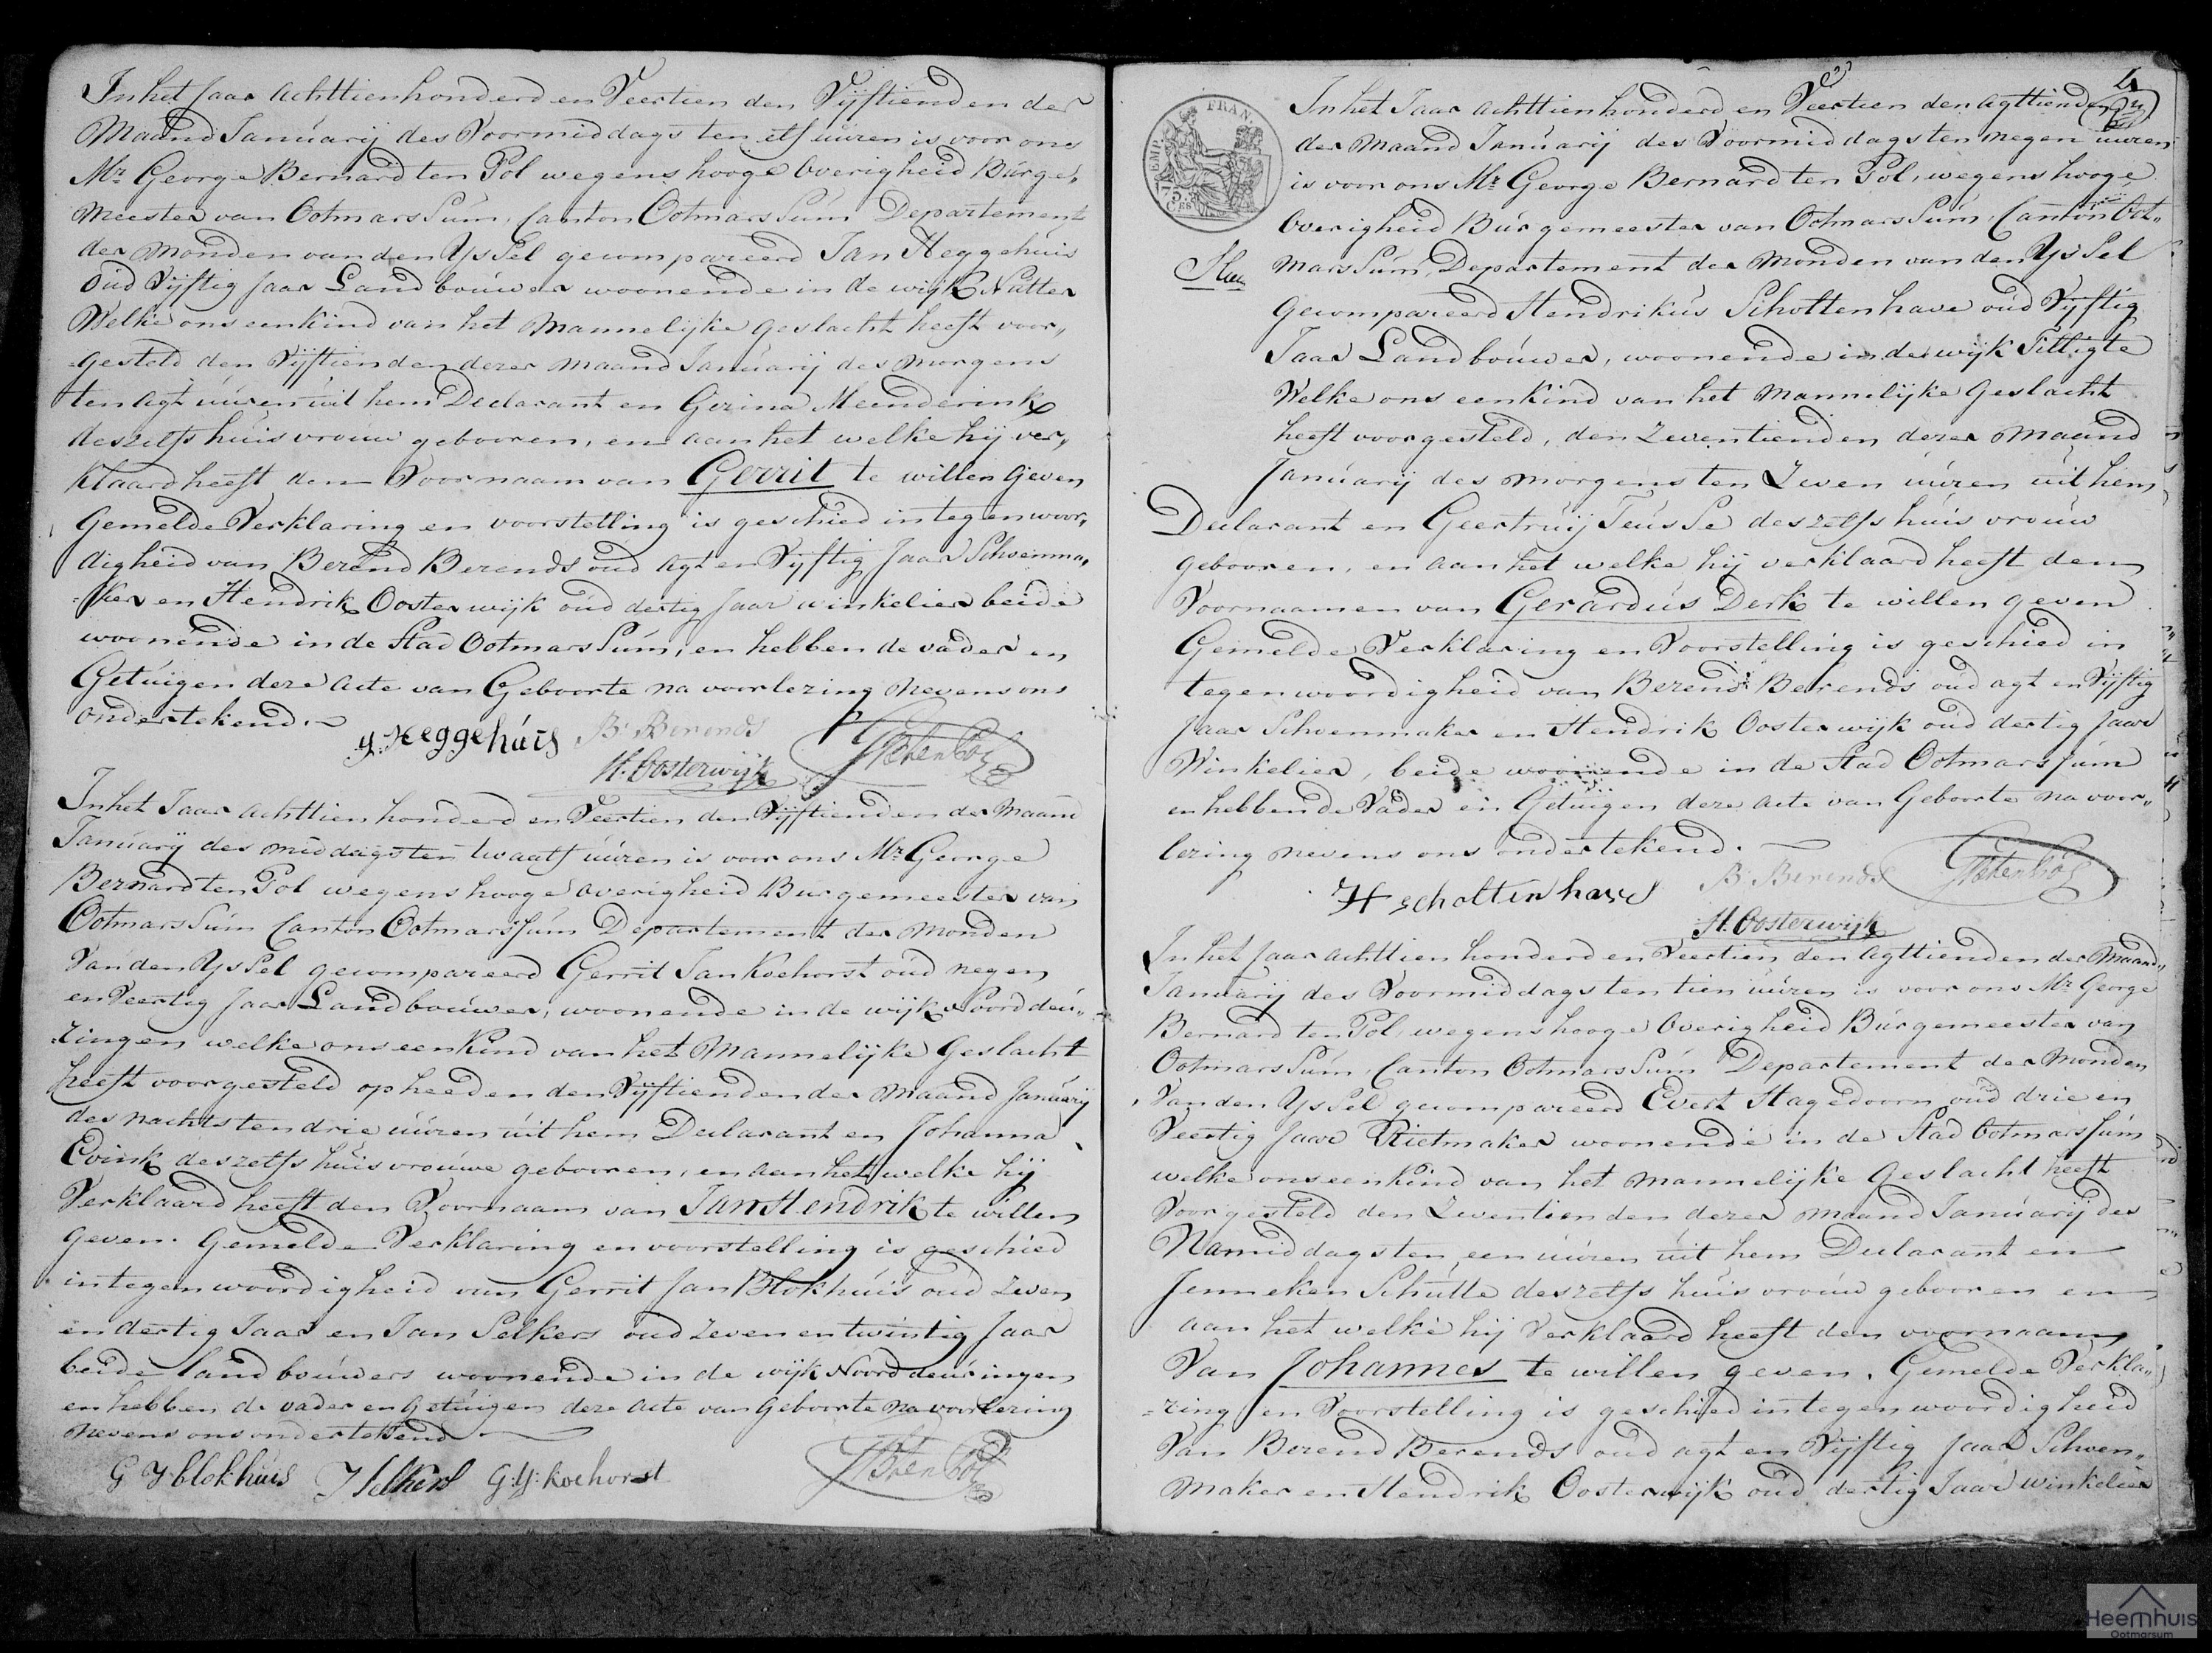 In het Jaar achttienhonderd en Veertien den Vijftienden der
Maand Januarij des Voormiddags ten elf uuren is voor ons
Mr George Bernard ten Pol wegens hooge Overigheid Burge„
Meester van OotmarsSum, Canton OotmarsSum Departement
der Monden van den YsSel gecompareerd Jan Heggehuis
oud Vijftig Jaar Landbouwer woonende in de wijk Nutter
Welke ons een kind van het Mannelijke geslacht heeft voor„
gesteld den Vijftienden dezer maand Januarij des morgens
ten agt uuren uit hem Declarant en Gezina Meenderink
deszelfs huisvrouw gebooren, en aan het welke hij ver„
klaard heeft den Voornaam van Gerrit te willen geven
Gemelde Verklaring en voorstelling is geschied in tegenwoor„
digheid van Berend Berends oud agt en Vijftig Jaar Schoenma„
ker en Hendrik Oosterwijk oud dertig Jaar winkelier beide
woonende in de Stad OotmarsSum, en hebben de vader en
Getuigen deze acte van Geboorte na voorlezing nevens ons
ondertekend.
g: Heggehuis B: Berends
H. Oosterwijk GBtenPol
In het Jaar achttien honderd en Veertien den Vijftienden der Maand
Januarij des middags ten twaalf uuren is voor ons Mr George
Bernard ten Pol wegens hooge overigheid Burgemeester van
OotmarsSum Canton OotmarsSum Departement der Monden
Van den YsSel gecompareerd Gerrit Jan Koehorst oud negen
en Veertig Jaar Landbouwer, woonende in de wijk Noorddeu„
zingen welke ons een Kind van het Mannelijke Geslacht
heeft voorgesteld op heeden den Vijftienden der Maand Januarij
des nachts ten drie uuren uit hem Declarant en Johanna
Evink deszelfs huisvrouwe gebooren, en aan het welke hij
Verklaard heeft den Voornaam van Jan Hendrik te willen
Geven. Gemelde Verklaring en voorstelling is geschied
in tegenwoordigheid van Gerrit Jan Blokhuis oud zeven
en dertig Jaar en Jan Selkers oud zeven en twintig Jaar
beide landbouwers woonende in de wijk Noorddeuringen
en hebben de vader en Getuigen deze acte van Geboorte na voorlezing
nevens ons ondertekend
G J blokhuis J Selkers G:J: koehorst GBtenPol
4
EMP. FRAN.
75
CES
In het Jaar achttienhonderd en Veertien den agttienden
der Maand Januarij des Voormiddags ten negen uuren
is voor ons Mr George Bernard ten Pol, wegens hooge
Overigheid Burgemeester van OotmarsSum, Canton Oot„
marsSum, Departement der Monden van den YsSel
Gecompareerd Hendrikus Scholtenhave oud Vijftig
Jaar Landbouwer, woonende in de wijk Tilligte
Welke ons een Kind van het Mannelijke Geslacht
heeft voorgesteld, den Zeventienden dezer Maand
Januarij des morgens ten Zeven uuren uit hem
Declarant en Geertruij TeusSe deszelfs huisvrouw
gebooren, en aan het welke hij verklaard heeft den
Voornaamen van Gerardus Derk te willen geven
Gemelde Verklaring en Voorstelling is geschied in
tegenwoordigheid van Berend Berends oud agt en Vijftig
Jaar Schoenmaker en Hendrik Oosterwijk oud dertig Jaar
Winkelier, beide woonende in de Stad OotmarsSum
en hebben de Vader en Getuigen deze acte van Geboorte na voor„
lezing nevens ons ondertekend.
H scholtenhave B: Berends GBtenPol
H. Oosterwijk
In het Jaar achttien honderd en Veertien den agttienden der Maand
Januarij des Voormiddags ten tien uuren is voor ons Mr George
Bernard ten Pol, wegens hooge Overigheid Burgemeester van
OotmarsSum, Canton OotmarsSum Departement der Monden
Van den YsSel gecompareerd Evert Hagedoorn oud drie en
Veertig Jaar Rietmaker woonende in de Stad OotmarsSum
welke ons een Kind van het mannelijke Geslacht heeft
Voorgesteld den Zeventienden dezer Maand Januarij des
Namiddags ten een uuren uit hem Declarant en
Jenneken Schutte deszelfs huisvrouw gebooren en
aan het welke hij Verklaard heeft den voornaam
Van Johannes te willen geven. Gemelde Verkla„
ring en Voorstelling is geschied in tegenwoordigheid
Van Berend Berends oud agt en Vijftig Jaar Schoen„
maker en Hendrik Oosterwijk oud dertig Jaar winkelier
Heemhuis
Ootmarsum